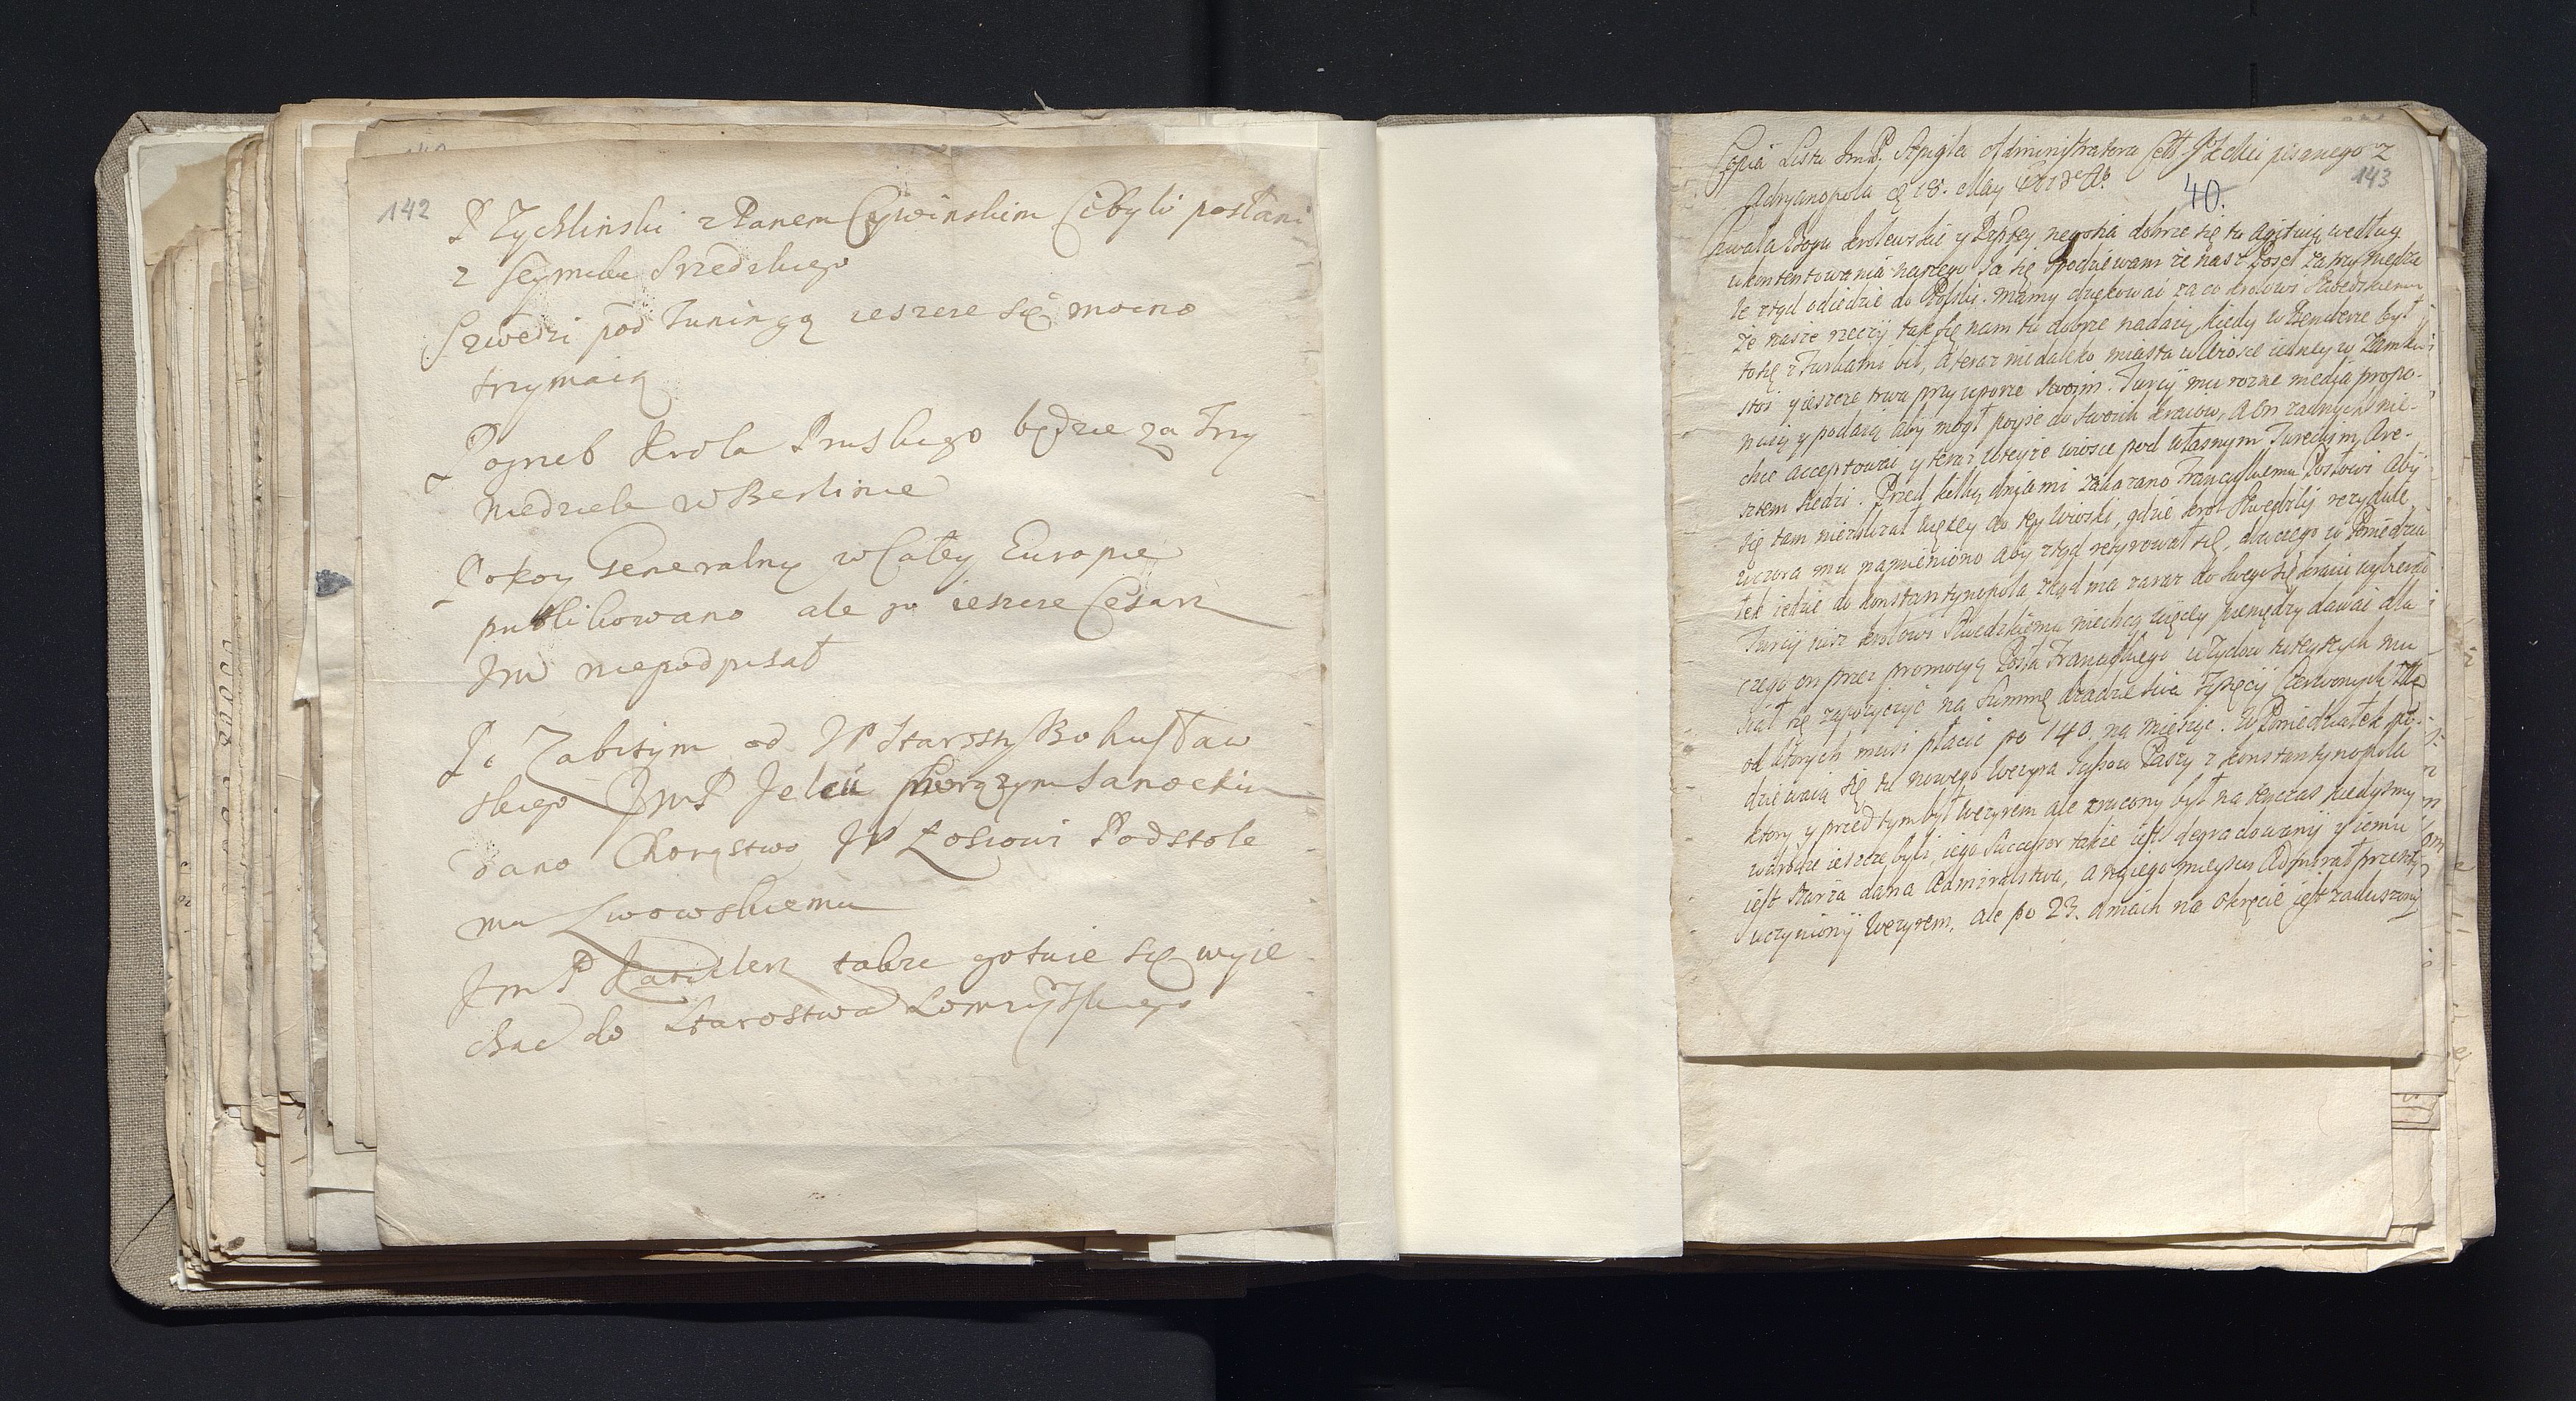 142
P Zychlinski z Panem Cywinskim Ci byli posłani
z Seymiku Srzedzkiego
Szwedzi pod Tuningą ieszcze się mocno
trzymaią
Pogrzeb Krola Pruskiego będzie za Trzy
niedziele w Berlinie
Pokoy Generalny w Całey Europie
publikowano ale go ieszcze Cesarz
Jm niepodpisał
Po Zabitym od JP Starosty Bohusław
skiego JmP Jelcu Chorązym Sanockim
dano Chorąstwo JP Łosiowi Podstole
mu Lwowskiemu
JmP Kanclerz takze gotuie się wyie
chac do Starostwa Łomzyskiego
143
Copia Listu JmP. Administratora pisanego z
Adryanopola d. 18. May
40.
Chwała Bogu Krolewskie y Rzptey negotia dobrze się tu agituią według
ukontentowania naszego Ja się spodziewam ze nasz Poseł za przymędzą
Ze ztąd odiedzie do Polski. mamy dziękowac za co Krolowi Szwedzkiemu
Ze nasze rzeczy tak się nam tu dobrze nadaią, kiedy w Benderze był
to się z Turkami bił, a teraz niedaleko miasta w wiosce iedney w Zamku
stoi y ieszcze trwa przy uporze swoim. Turcy mu rozne media propo-
nuią y podaią aby mogł poyść do swoich kraiow, a On zadnych nie-
chce acceptowac y teraz w teyze wiosce pod własnym Tureckim Are-
sztem siedzi. Przed kilką dniami zakazano Francuskiemu Posłowi aby
się tam niezblizał więcey do tey wioski, gdzie Krol Szwedzki rezyduie
wczora mu namieniono aby ztąd retyrował się, dla czego w Poniedzia
łek iedzie do Konstantynopola zkąd ma zaraz do swego się kraiu wybierac
Turcy tesz Krolowi Szwedzkiemu niechcą więcey pieniędzy dawac dla
czego on przez promocyą Posła Francuskiego u Zydow tuteyszych mu
siał się zapozyczyc na Summę dwadziescia Tysięcy Czerwonych Zł
od ktorych musi płacic po 140. na miesiąc. W Poniedziałek spo-
dziewaią się tu nowego Wezyra Paszy z Konstantynopola
ktory y przed tym był Wezyrem ale zrucony był na tenczas kiedysmy
w drodze ieszcze byli, iego Successor takze iest degradowany y iemu
iest Szarza dana Admiralstwa, a na iego mieysce Admirał przeszły
uczyniony Wezyrem, ale po 23. dniach na okręcie iest zaduszony